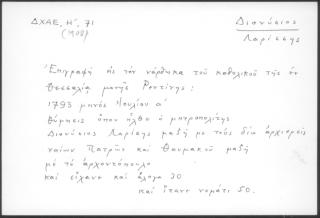 ΔΧΑΕ, Η', 71
(1908)
Διονύσιος
Λαρίσσης
Ἐπιγραφή εἰς τόν νάρθηκα τοῦ καθολικοῦ τῆς ἐν
Θεσσαλίᾳ μονῆς Ρεντίνης:
1793 μηνός Ἰουλίου α'
θύμησις ὅπου ἦλθε ὁ μητροπολίτης
Διονύσιος Λαρίσης μαζή με τούς δύο ἀρχιερεῖς
Πατρῶν καί Θαυμακοῦ μαζή
μέ τό ἀρχοντόπουλο
καί εἴχανε καί ἄλογα 30
καί ἤτανε νομάτι 50.